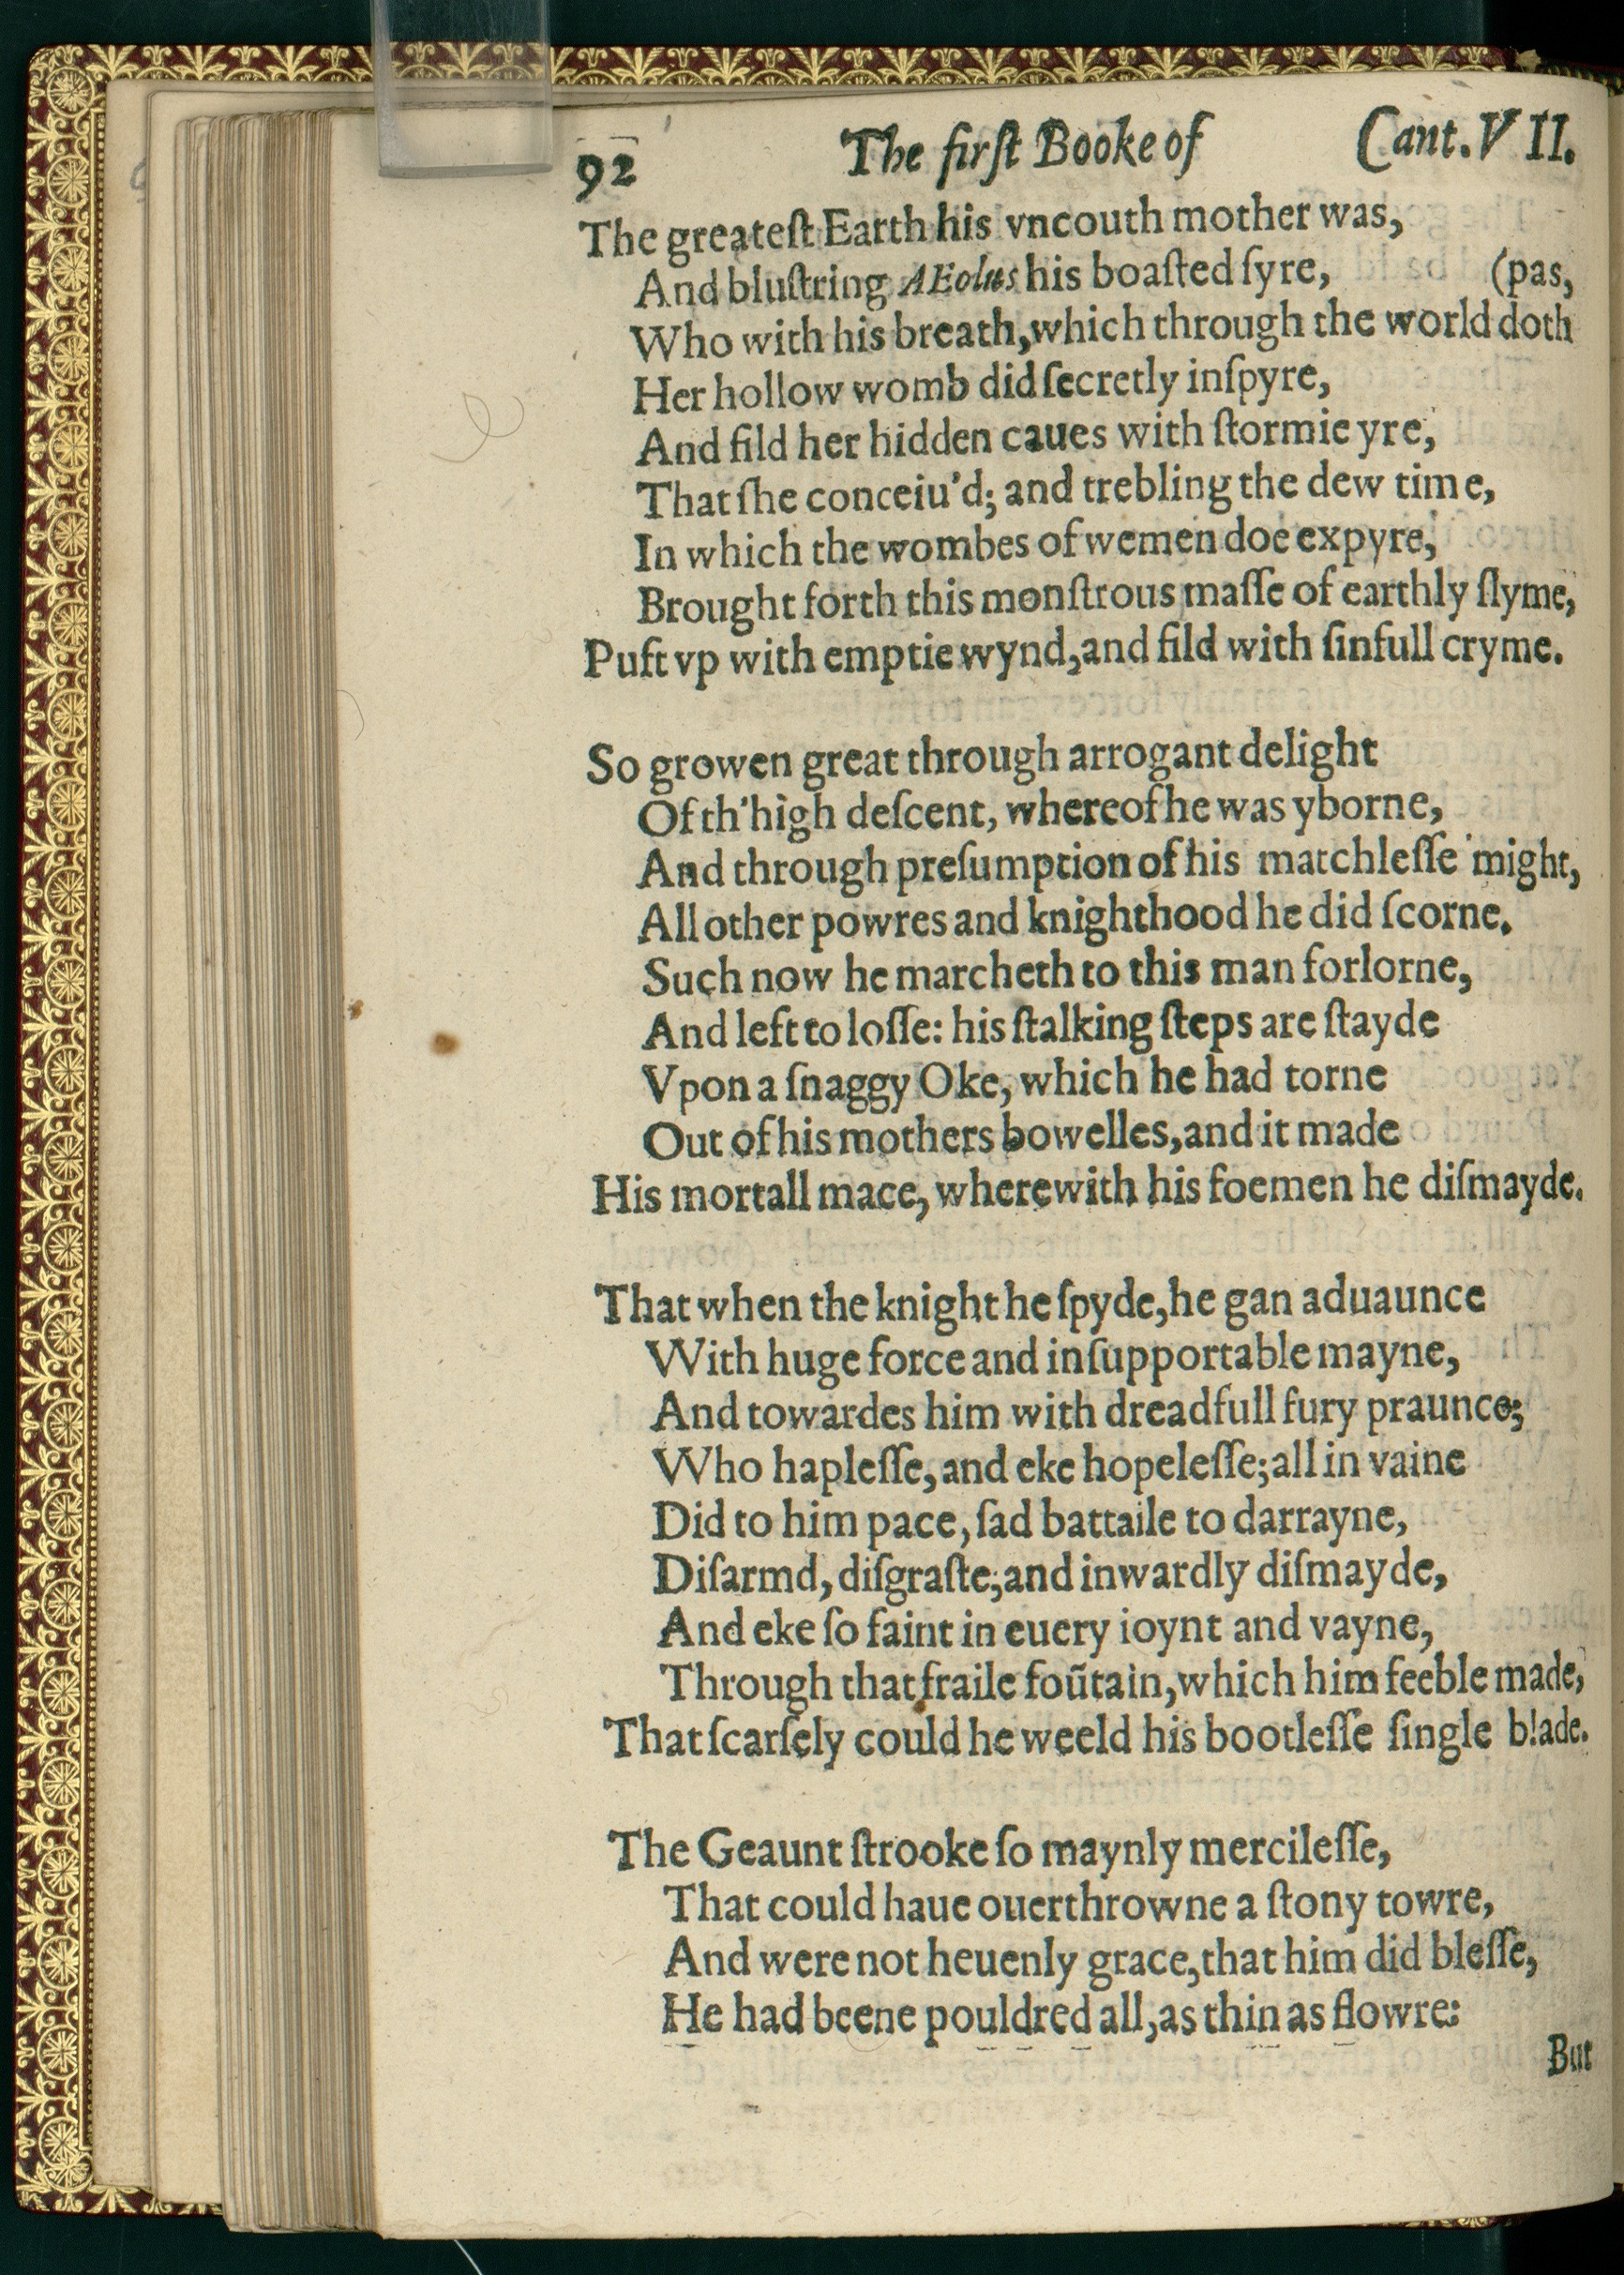 92 The firſt Booke of Cant. VII.
The greateſt Earth his vncouth mother was,
And bluſtring AEolus his boaſted ſyre, (pas,
Who with his breath, which through the world doth
Her hollow womb did ſecretly inſpyre,
And fild her hidden caues with ſtormie yre,
That ſhe conceiu'd; and trebling the dew time,
In which the wombes of wemen doe expyre,
Brought forth this monſtrous maſſe of earthly ſlyme,
Puft vp with emptie wynd, and fild with ſinfull cryme.
So growen great through arrogant delight
Of th'high deſcent, whereof he was yborne,
And through preſumption of his matchleſſe might,
All other powres and knighthood he did ſcorne.
Such now he marcheth to this man forlorne,
And left to loſſe: his ſtalking ſteps are ſtayde
Vpon a ſnaggy Oke, which he had torne
Out of his mothers bowelles, and it made
His mortall mace, wherewith his foemen he diſmayde.
That when the knight he ſpyde, he gan aduaunce
With huge force and inſupportable mayne,
And towardes him with dreadfull fury praunce;
Who hapleſſe, and eke hopeleſſe; all in vaine
Did to him pace, ſad battaile to darrayne,
Diſarmd, diſgraſte, and inwardly diſmayde,
And eke ſo faint in euery ioynt and vayne,
Through that fraile foũtain, which him feeble made,
That ſcarſely could he weeld his bootleſſe ſingle blade.
The Geaunt ſtrooke ſo maynly mercileſſe,
That could haue ouerthrowne a ſtony towre,
And were not heuenly grace, that him did bleſſe,
He had beene pouldred all, as thin as flowre:
But